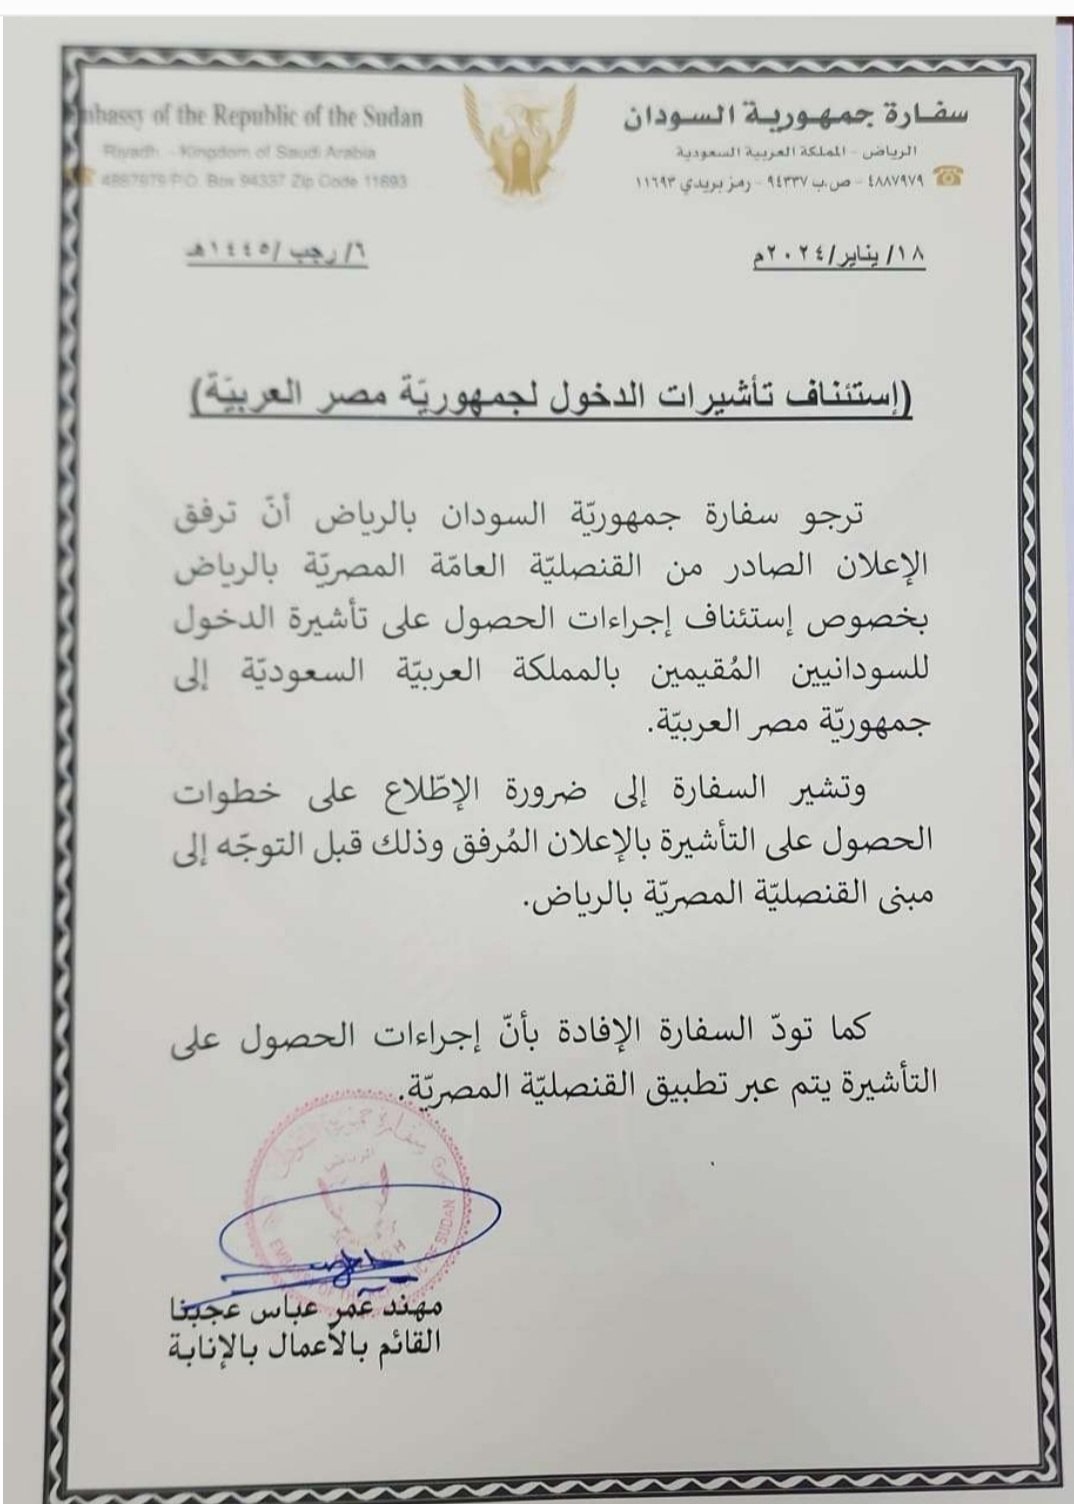 سفارة جمهورية السودان
الرياض - المملكة العربية السعودية
٤٨٨٧٩٧٩ - ص.ب ٩٤٣٣٧ - رمز بريدي ١١٦٩٣
Embassy of the Republic of the Sudan
Riyadh - Kingdom of Saudi Arabia
4887979 P.O. Box 94337 Zip Code 11693
١٨/ يناير/٢٠٢٤م
٦/ رجب /١٤٤٥هـ
(إستئناف تأشيرات الدخول لجمهوريّة مصر العربيّة)
ترجو سفارة جمهوريّة السودان بالرياض أنّ ترفق
الإعلان الصادر من القنصليّة العامّة المصريّة بالرياض
بخصوص إستئناف إجراءات الحصول على تأشيرة الدخول
للسودانيين المُقيمين بالمملكة العربيّة السعوديّة إلى
جمهوريّة مصر العربيّة.
وتشير السفارة إلى ضرورة الإطّلاع على خطوات
الحصول على التأشيرة بالإعلان المُرفق وذلك قبل التوجّه إلى
مبنى القنصليّة المصريّة بالرياض.
كما تودّ السفارة الإفادة بأنّ إجراءات الحصول على
التأشيرة يتم عبر تطبيق القنصليّة المصريّة.
مهند عمر عباس عجبنا
القائم بالأعمال بالإنابة